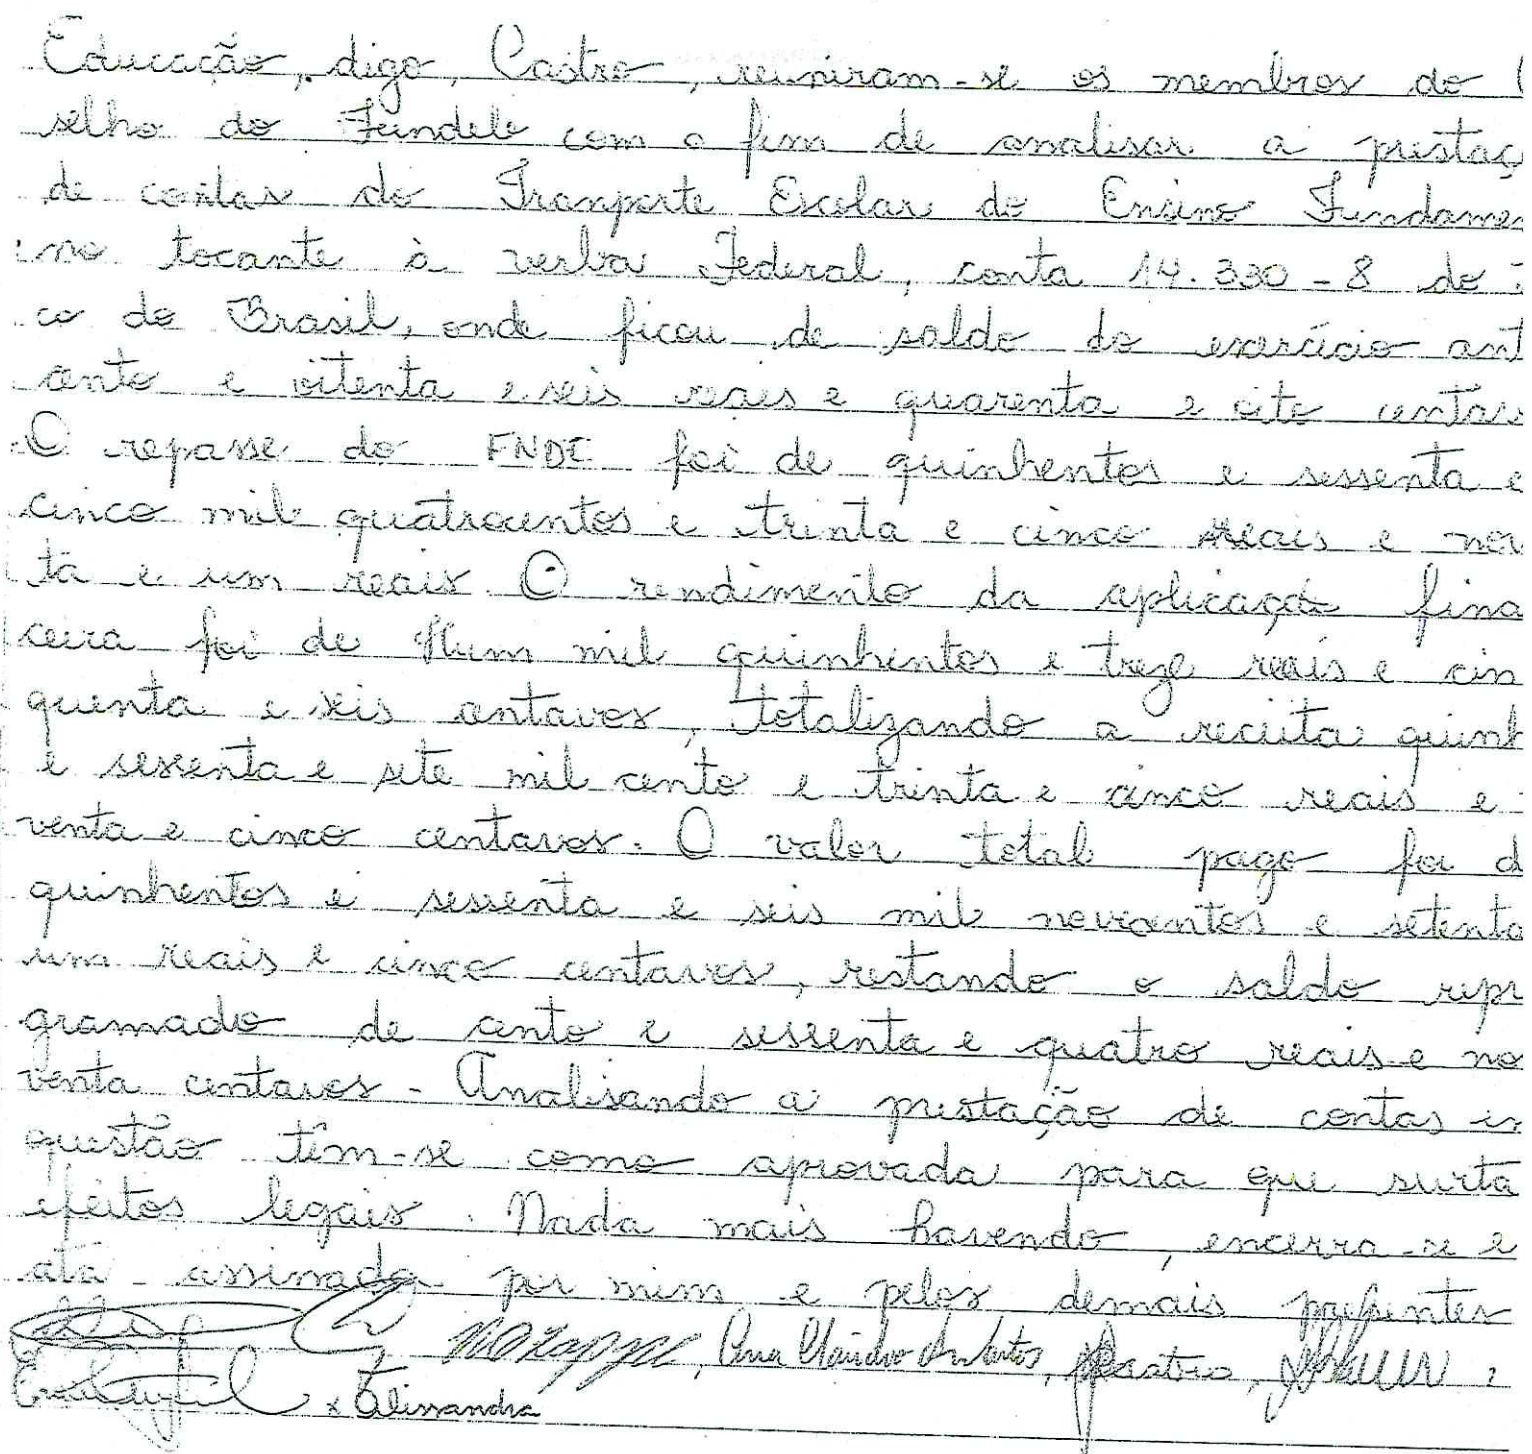 Educação, digo, Castro, reuniram-se os membros do C
selho do Fundeb com o fim de analisar a prestaç
de contas do Transporte Escolar do Ensino Fundamen
no tocante à verba Federal, conta 14.330-8 do
co do Brasil, onde ficou de saldo do exercício ant
cento e oitenta e seis reais e quarenta e oito centav
O repasse do FNDE foi de quinhentos e sessenta e
cinco mil quatrocentos e trinta e cinco reais e nov
ta e um reais. O rendimento da aplicação finan
ceira foi de Hum mil quinhentos e treze reais e cin
quenta e seis centavos, totalizando a receita quinh
e sessenta e sete mil cento e trinta e cinco reais e
venta e cinco centavos. O valor total pago foi d
quinhentos e sessenta e seis mil novecentos e setenta
um reais e cinco centavos, restando o saldo repr
gramado de cento e sessenta e quatro reais e no
venta centavos - Analisando a prestação de contas em
questão têm-se como aprovada para que surta
efeitos legais. Nada mais havendo, encerra-se e
ata assinada por mim e pelos demais presentes
Ana Claudia
x Alissandra